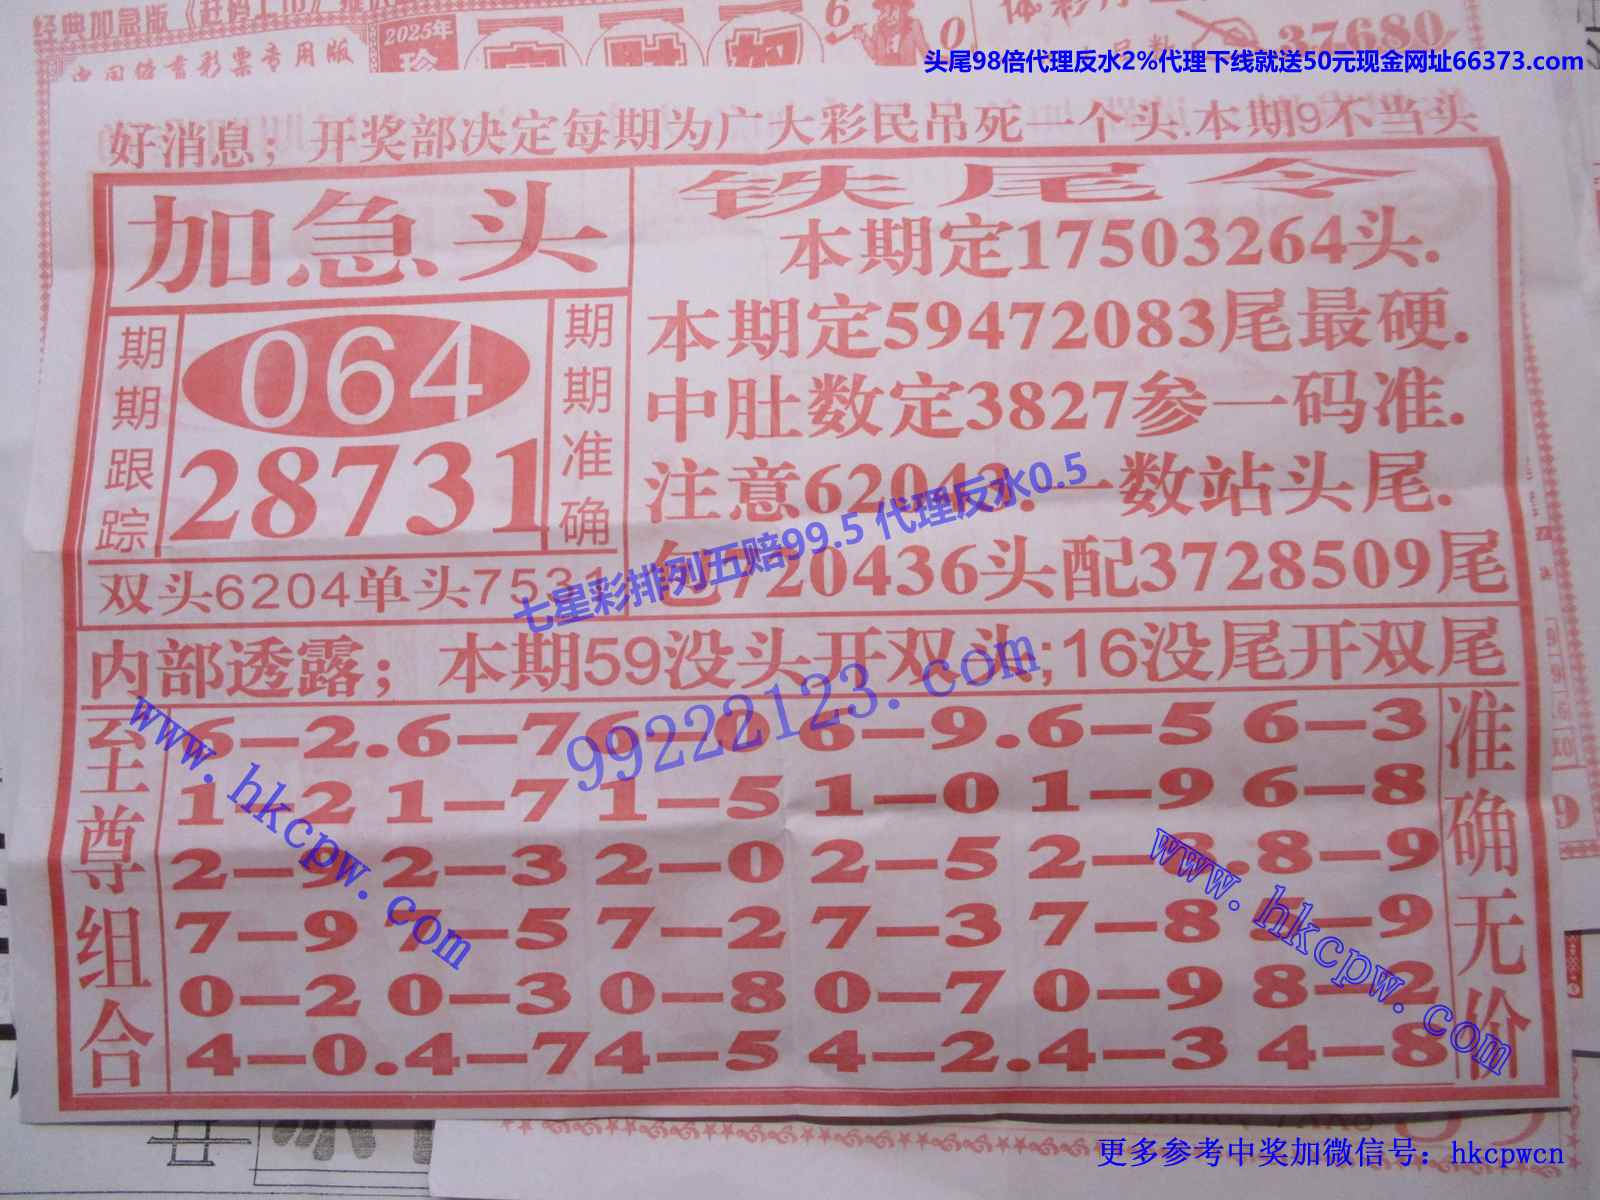 经典加急版《赶码上市》
中国体育彩票专用版
2025年
珍
6
0
37680
头尾98倍代理反水2%代理下线就送50元现金网址66373.com
好消息；开奖部决定每期为广大彩民吊死一个头.本期9不当头
加急头
铁尾令
本期定17503264头.
本期定59472083尾最硬.
中肚数定3827参一码准.
注意6204 一数站头尾.
包720436头配3728509尾
期期跟踪
064
28731
期期准确
双头6204单头7531
七星彩排列五赔99.5 代理反水0.5
内部透露；本期59没头开双头;16没尾开双尾
99222123.com
至尊组合
6-2.6-7 6-0 6-9.6-5 6-3
1-2 1-7 1-5 1-0 1-9 6-8
2-9 2-3 2-0 2-5 2-8.8-9
7-9 7-5 7-2 7-3 7-8 -9
0-2 0-3 0-8 0-7 0-9 8-2
4-0.4-7 4-5 4-2.4-3 4-8
准确无价
www.hkcpw.com
www.hkcpw.com
更多参考中奖加微信号：hkcpwcn